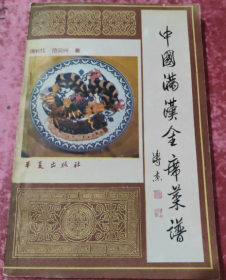 中國滿漢全席菜譜
溥杰
華夏出版社